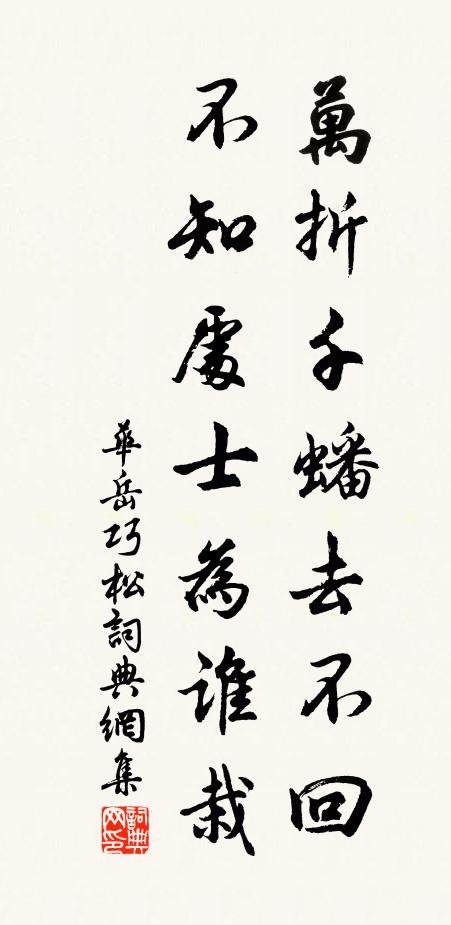 萬折千蟠去不回
不知處士為誰栽
華岳巧松詞典網集
詞典網印